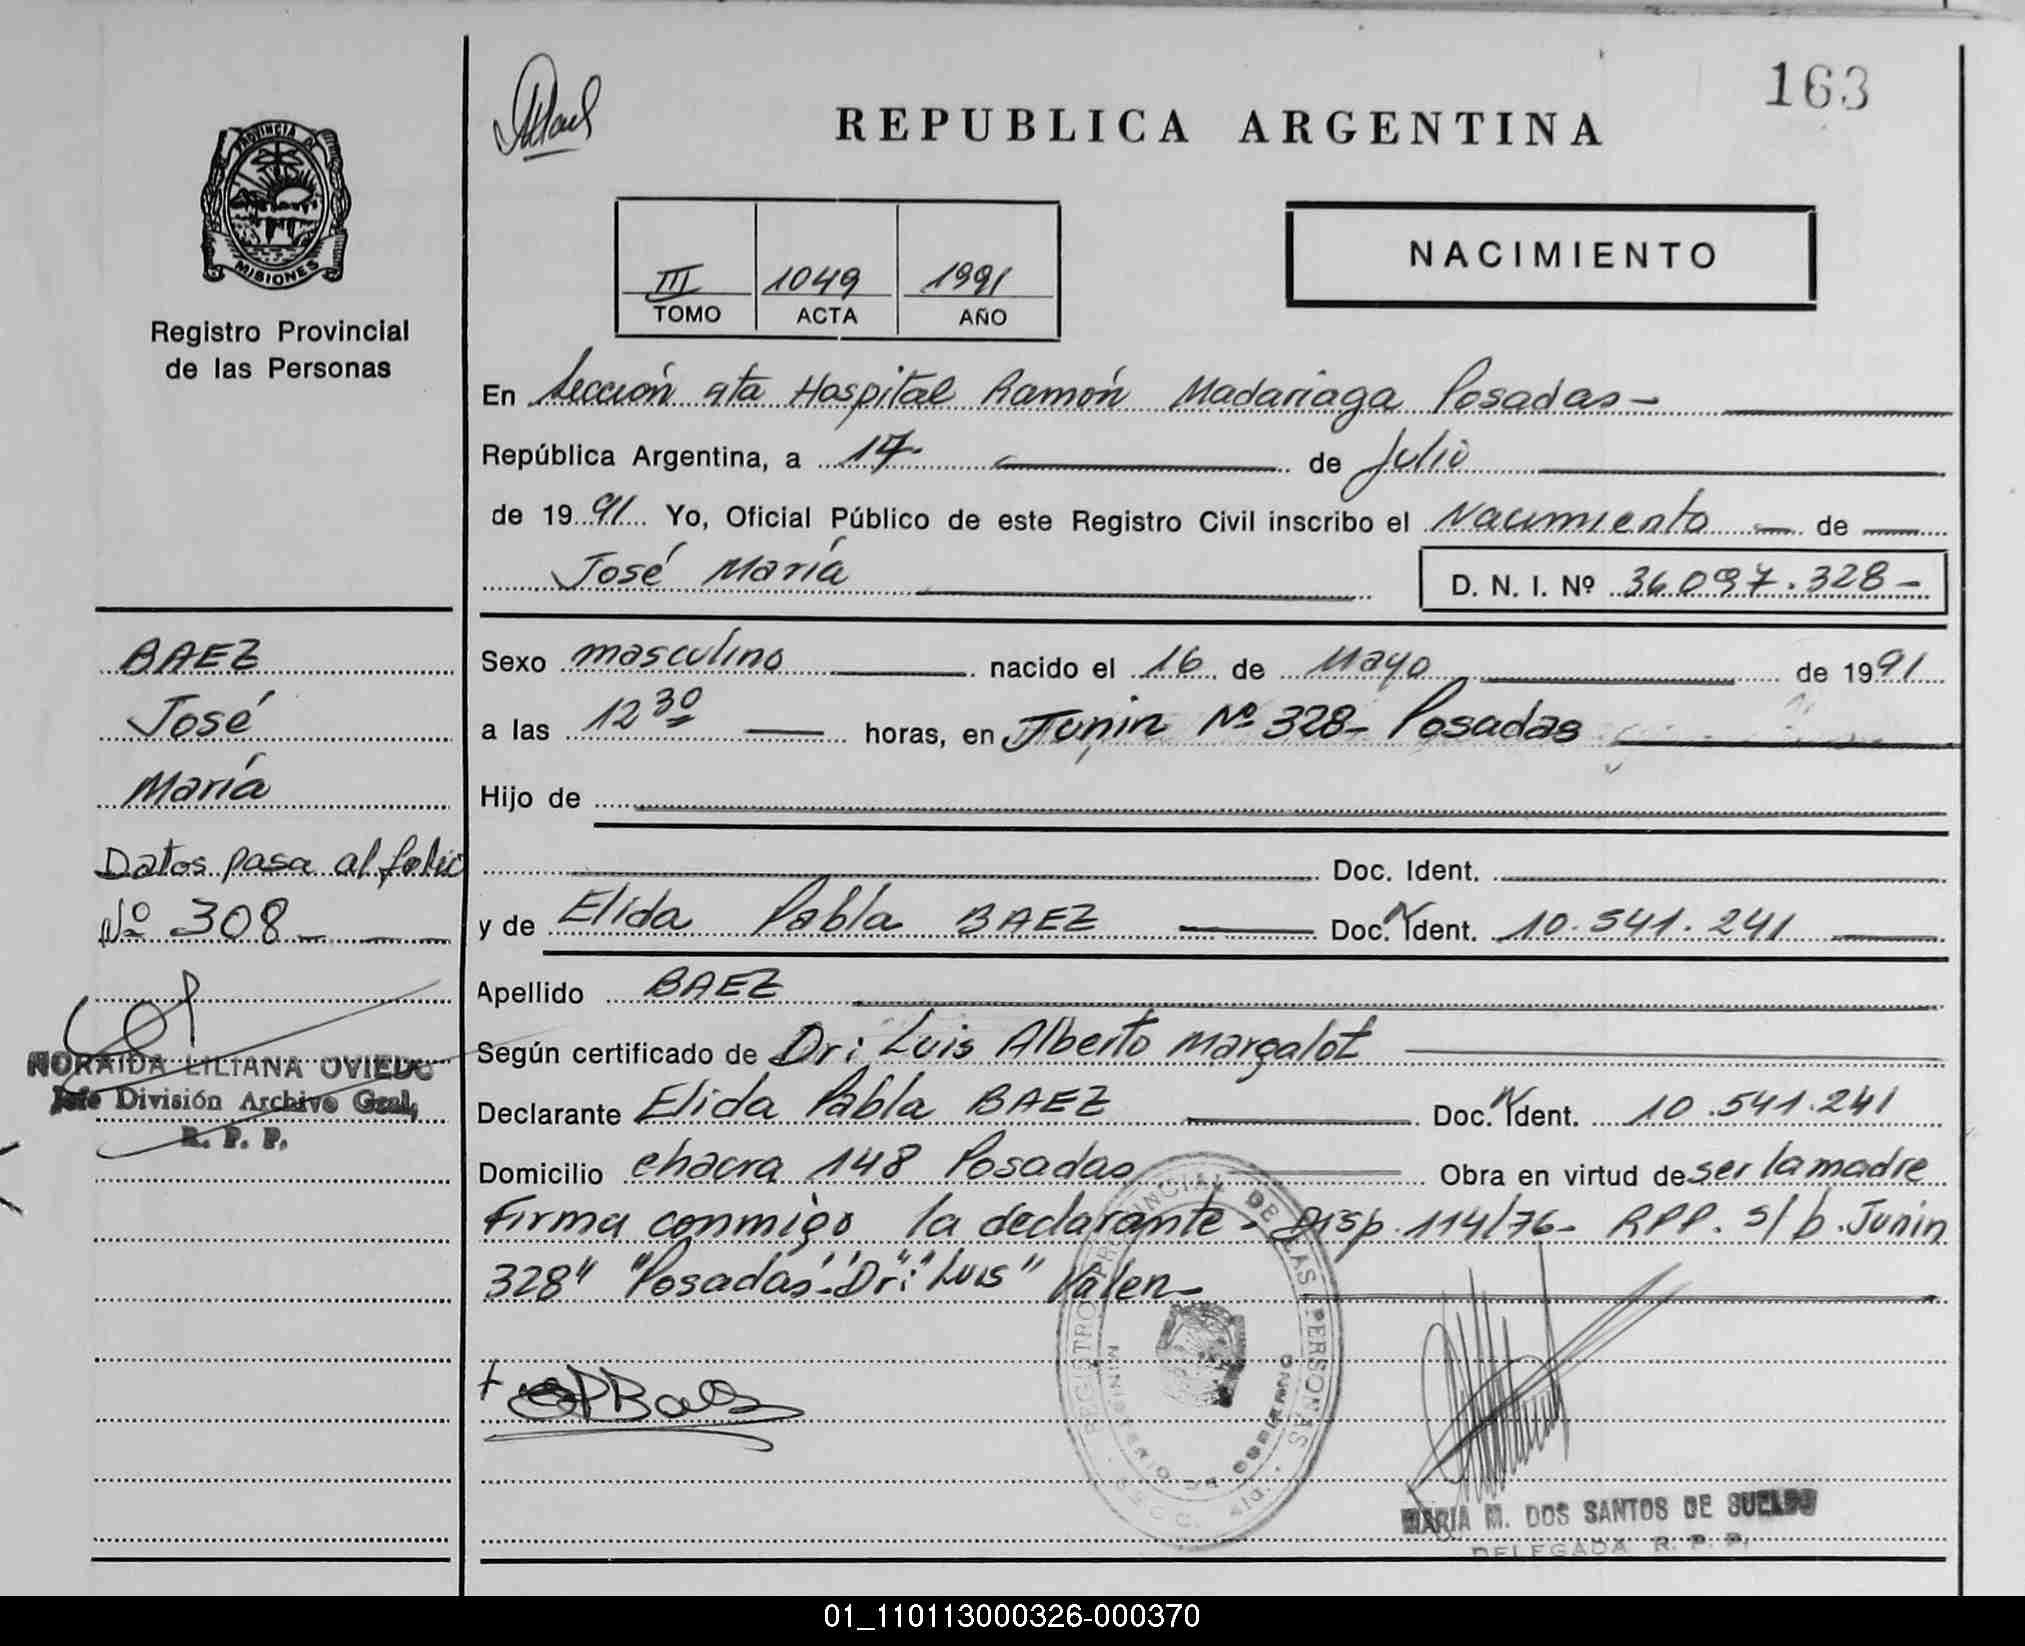 163
REPUBLICA ARGENTINA
PROVINCIA DE
MISIONES
Registro Provincial
de las Personas
III 1049 1991
TOMO ACTA AÑO
NACIMIENTO
En Sección 4ta Hospital Ramón Madariaga Posadas-
República Argentina, a 17- de Julio
de 1991 Yo, Oficial Público de este Registro Civil inscribo el Nacimiento de
José María D. N. I. Nº 36.097.328-
BAEZ
José
María
Datos pasa al folio
Nº 308-
NORAIDA LILIANA OVIEDO
Jefe División Archivo Gral.
R. P. P.
Sexo masculino nacido el 16 de Mayo de 1991
a las 12 30 horas, en Junin Nº 328- Posadas
Hijo de
Doc. Ident.
y de Elida Pabla BAEZ Doc. Ident. 10.541.241
Apellido BAEZ
Según certificado de Dr: Luis Alberto Margalot
Declarante Elida Pabla BAEZ Doc. Ident. 10.541.241
Domicilio chacra 148 Posadas Obra en virtud de ser la madre
Firma conmigo la declarante- Disp. 114/76- RPP. s/b. Junin
328" "Posadas"-"Dr:" Luis" Valen-
REGISTRO PROVINCIAL DE LAS PERSONAS
MINISTERIO DE GOBIERNO
MARIA M. DOS SANTOS DE SUELDO
DELEGADA R. P. P.
01_110113000326-000370